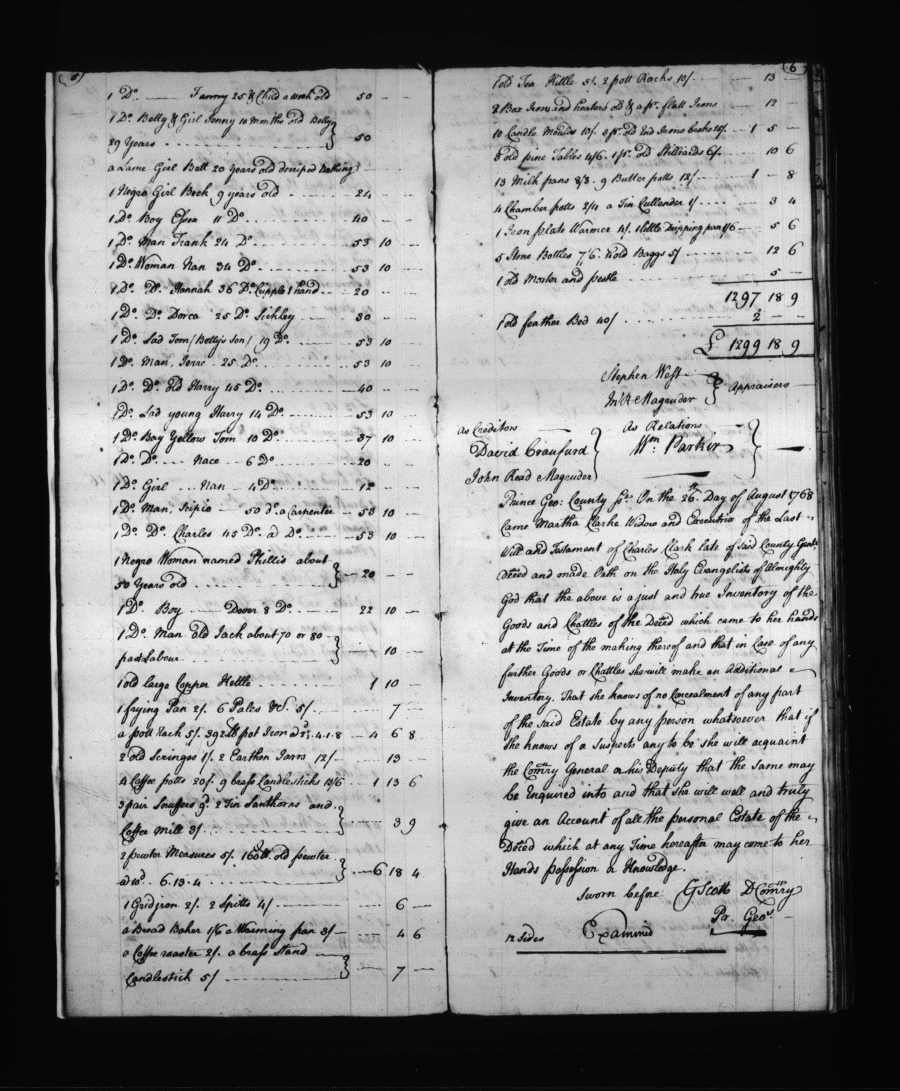 5)
1 Do. Fanny 25 & Child a week old 50 —
1 Do. Betty & Girl Jenny 10 Months old Betty
29 Years 50
a Lame Girl Bell 20 years old decriped Nothing
1 Negro Girl Beck 9 years old 24
1 Do. Boy Essex 11 Do. 40 —
1 Do. Man Frank 24 Do. 53 10 —
1 Do. Woman Nan 34 Do. 53 10
1 Do. Do. Hannah 36 Do. Cripple 1 hand 20 —
1 Do. Do. Dorca 25 Do. Sickley 30 —
1 Do. Lad Tom (Betty's Son) 19 Do. 53 10
1 Do. Man Jerre 25 Do. 53 10
1 Do. Do. Old Harry 45 Do. 40 —
1 Do. Lad young Harry 14 Do. 53 10
1 Do. Boy Yellow Tom 10 Do. 37 10
1 Do. Do. Nace 6 Do. 20
1 Do. Girl Nan 4 Do. 12
1 Do. Man Scipio 50 do. a Carpenter 58 10
1 Do. Do. Charles 45 Do. a Do. 53 10
1 Negro Woman named Phillis about
50 Years old 20 —
1 Do. Boy Dover 8 Do. 22 10 —
1 Do. Man Old Jack about 70 or 80
past Labour 10 —
1 old large Copper Kettle 1 10
1 frying Pan 2/. 6 Pales &c. 5/. 7 —
a pott Rack 5/. 392 lb pot Iron a 2½. 4.1.8 4 6 8
2 old Scringes 1/. 2 Earthen Jarrs 12/ 13 —
4 Coffee potts 20/. 9 brass Candlesticks 13/6 1 13 6
3 pair Snuffers 9d. 2 Tin Lanthorns and
Coffee Mill 3/. 3 9
2 pewter Measures 5/. 160 lb. old pewter
a 10d. 6.13.4 6 18 4
1 Gridiron 2/. 2 Spitts 4/ 6 —
a Bread Baker 1/6 a Warming pan 3/ 4 6
a Coffee roaster 2/. a brass Stand
Candlestick 5/ 7 —
(6
1 old Tea Kittle 3/. 2 pott Racks 10/. 13 —
2 Box Irons and heators old & a pr. flatt Irons 12 —
10 Candle Moulds 10/. 2 pr. old End Irons broke 15/. 1 5 —
8 old pine Tables 4/6. 1 pr. old Stilliards 6/. 10 6
13 Milk pans 8/8. 9 Butter potts 12/ 1 — 8
4 Chamber potts 2/4 a Tin Cullender 1/ 3 4
1 Iron plate Warmer 4/. 1 little Dripping pan 1/6 5 6
5 Stone Bottles 7/6. old Baggs 5/ 12 6
1 old Morter and pestle 5 —
1297 18 9
1 old feather Bed 40/ 2 — —
£ 1299 18 9
Stephen West
Jn. R Magruder } Appraisers
As Creditors As Relations
David Craufurd Wm. Parker
John Read Magruder
Prince Geo: County Sst. On the 26th. Day of August 1768
Came Martha Clarke Widow and Executrix of the Last
Will and Testament of Charles Clark late of said County Gent.
Deced and made Oath on the Holy Evangelists of Almighty
God that the above is a just and true Inventory of the
Goods and Chattles of the Deced which came to her hands
at the Time of the making thereof and that in Case of any
further Goods or Chattles she will make an Additional
Inventory. That she knows of no Concealment of any part
of the said Estate by any person whatsoever that if
She knows of or Suspects any to be she will acquaint
the Comry General or his Deputy that the same may
be Enquired into and that she will well and truly
give an Account of all the personal Estate of the
Deced which at any Time hereafter may come to her
Hands possession or Knowledge.
Sworn before G Scott D Comry
Pr. Geos.
12 Sides Examined